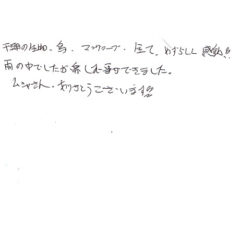 干潟の生物、鳥、マングローブ、全て、めずらしく感動!!
雨の中でしたが楽しむ事ができました。
ムシャさん、ありがとうございます